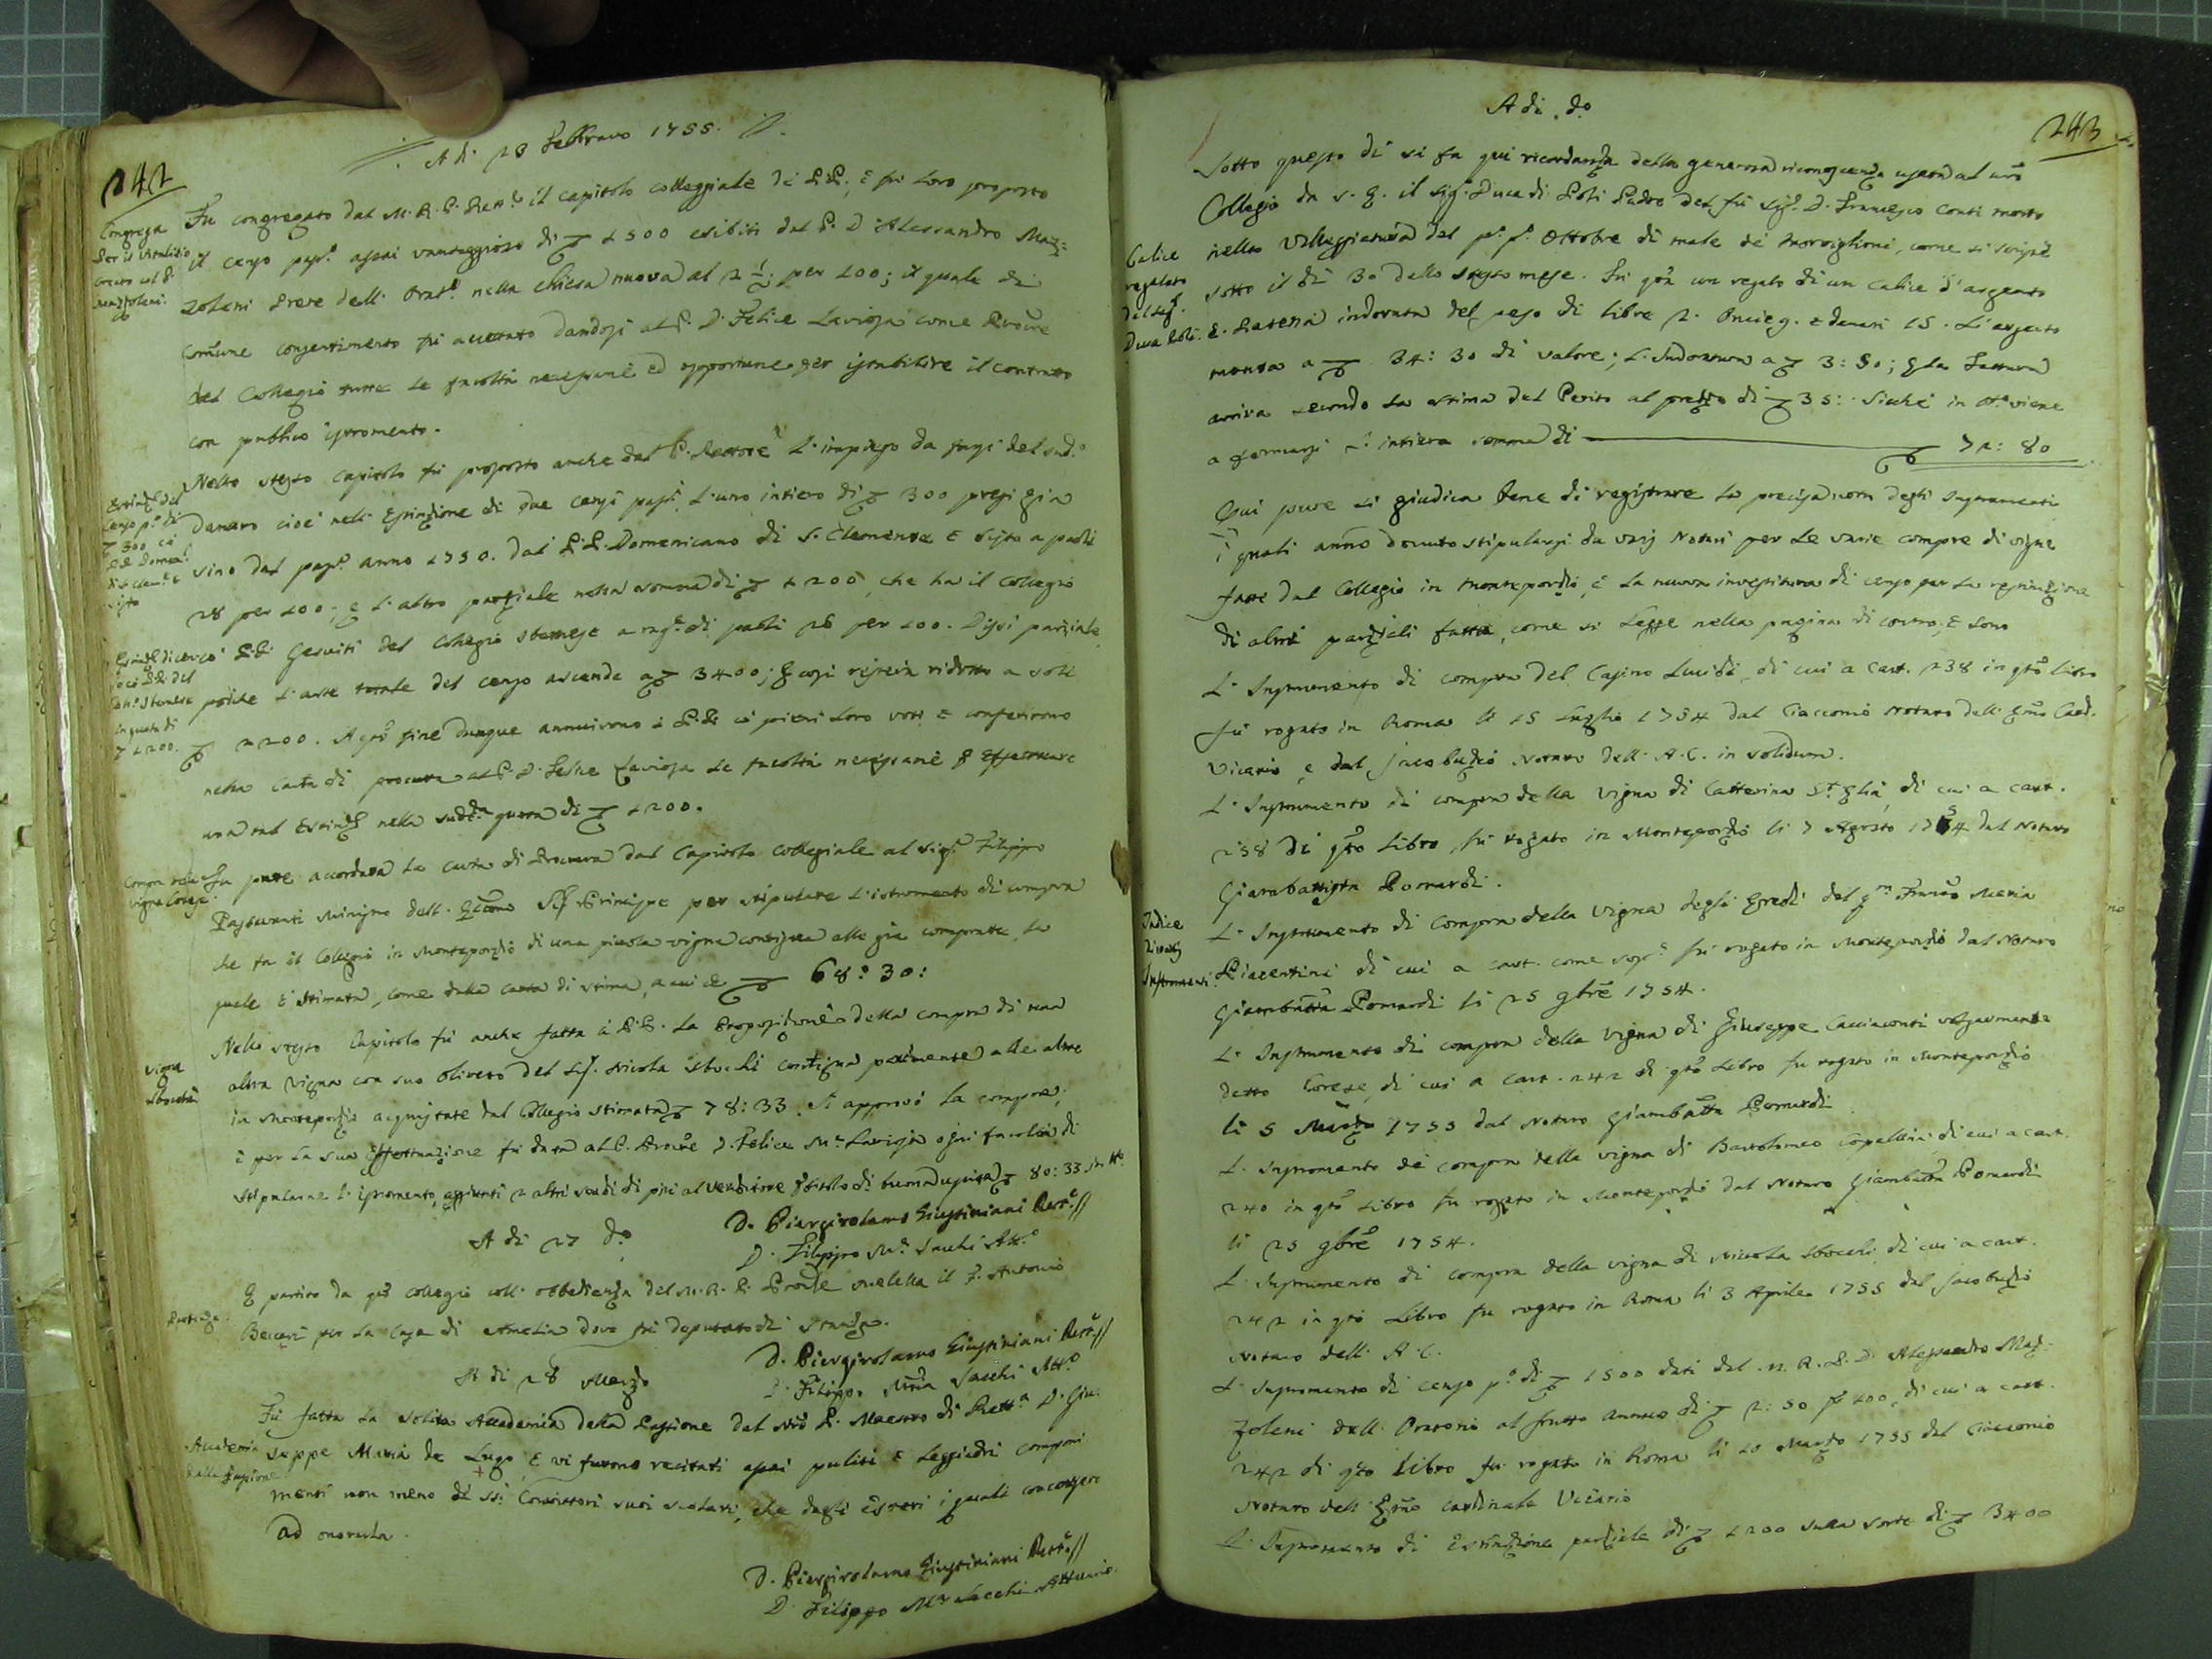 242
A di 23 Febbraro 1755.
Congrega
per il Vitalizio
creato col P.
Mazzoleni.
Fu congregato dal M. R. P. Rett.e il capitolo collegiale de PP., e fu loro proposto
il censo pass.o assai vantaggioso di 1500 esibiti dal P. D. Alessandro Maz=
zoleni Prete dell' Orat.o nella Chiesa nuova al 2 1/2 per 100; il quale di
comune consentimento fu accettato dandosi al P. D. Felice Lavioja come Procure
del Collegio tutte le facoltà necessarie ed opportune per istabilire il contratto
con publico istromento.
Estinz.e del
censo p.o di
300 co'
PP. Domen.i
di S. Clem.e e
Sisto
Nello stesso capitolo fu proposto anche dal P. Rettore l' impiego da farsi del sud.o
denaro cioè nell' Estinzione di due censi pass.i, l' uno intiero di 300 presi gia
sino dal pass.o anno 1730. dai PP. Domenicano di S. Clemente e Sisto a paoli
28 per 100; e l' altro parziale nella somma di 1200, che ha il Collegio
Estinz.e di censo
co' PP. del
Coll.o Senese
in quota di
1200.
co' PP. Gesuiti del Collegio Senese a rag.e di paoli 26 per 100. Dissi parziale
poiche l' arte totale del censo ascende a 3400; e così resterà ridotto a soli
2200. A q.to fine dunque annuirono i PP. co' pieni loro voti e conferirono
nella carta di procura al P. D. Felice Lavioja le facoltà necessarie p effettuare
una tal Estinz.e nella sudd.a quota di 1200.
Compra della
vigna Corese.
Fu pure accordata la carta di Procura dal Capitolo collegiale al Sig.r Filippo
Passeranti Ministro dell' Eccmo Sig Principe per stipulare l' istromento di compra
che fa il Collegio in Monteporzio di una picciola vigna contigua alle gia comprate, la
quale è stimata, come dalla carta di stima, a cui è 68: 30:
Vigna
Sbocchi
Nello stesso Capitolo fu anche fatta a' PP. la Proposizione della compra di una
altra vigna con suo oliveto del Sig. Nicola Sbocchi contigua parimente alle altre
in Monteporzio acquistate dal Collegio stimata 78: 33. Si approvò la compra,
e per la sua effettuazione fu data al P. Procure D. Felice M.a Lavioja ogni facoltà di
stipularne l' istromento, aggiunti 2 altri scudi di più al venditore p titolo di buona uscita 80: 33 in tt.o
D. Piergirolamo Giustiniani Rett.e//
D. Filippo M.a Sacchi Att.o
A di 27 d.o
Partenza.
E partito da q.to collegio coll' obbedienza del M. R. P. Prov.le Melella il F. Antonio
Beccari per la Casa di Amelia dove fu deputato di Stanza.
D. Piergirolamo Giustiniani Rett.e//
D. Filippo Mria Sacchi Att.o
A di 28 Marzo
Academia
della Passione
Fu fatta la solita Academia della Passione dal Nro P. Maestro di Rett.a D. Giu=
seppe Maria de Lugo, e vi furono recitati assai puliti e leggiadri componi
menti non meno di Ss.i Convittori suoi scolari, che dagli Esteri i quali concorsero
ad onorarla.
D. Piergirolamo Giustiniani Rett.e//
D. Filippo M.a Sacchi Attuario.
243
A di d.o
Sotto questo di si fa qui ricordanza della generosa riconoscenza usata al nro
Collegio da S. E. il Sig. Duca di Poli Padre del fu Sig. D. Francesco Conti morto
Calice
regalato
dal Sig.
Duca Poli.
nella Villeggiatura del p.o p.o Ottobre di male de' Morviglioni, come si scrisse
sotto il di 30 dello stesso mese. Fu q.ta un regalo di un Calice d' argento
e Patena indorata del peso di libre 2. Oncie 9. e denari 15. L' argento
monta a 34: 30 di valore; l' Indoratura a 3: 50; e la Fattura
arriva secondo la stima del Perito al prezzo di 35: Sicchè in tt.o viene
a formarsi l' intiera somma di 72: 80
Qui pure si giudica bene di registrare la precisa nota degli Instrumenti
i quali anno dovuto stipularsi da varj Notari per le varie compre di vigne
fatte dal Collegio in Monteporzio, e la nuova investitura di censo per la estinzione
di altri parziali fatta, come si legge nella pagina di contro, e sono
L' Instrumento di compra del Casino Lucidi, di cui a cart. 238 in q.to libro
fu rogato in Roma li 15 Luglio 1754 dal Ciacconio Notaro dell' Emo Card.
Vicario e dal Jacobuzio Notaro dell' A. C. in solidum.
L' Instrumento di compra della Vigna di Catterina, di cui a cart.
238 di q.to Libro, fu rogato in Monteporzio li 7 Agosto 1754 dal Notaro
Giambattista Pomardi.
Indice
di varij
Instromenti.
L' Instrumento di Compra della Vigna degli Eredi del q.m Franco Maria
Piacentini di cui a cart. come sop.a fu rogato in Monteporzio dal Notaro
Giambatta Pomardi li 25 9bre 1754.
L' Instrumento di compra della vigna di Giuseppe Cacciaconti volgarmente
detto Corese, di cui a cart. 242 di q.to Libro fu rogato in Monteporzio
li 5 Marzo 1755 dal Notaro Giambatta Pomardi
L' Instromento di compra della vigna di Bartolomeo Copellini, di cui a cart.
240 in q.to Libro fu rogato in Monteporzio dal Notaro Giambatta Pomardi
li 25 9bre 1754.
L' Instrumento di compra della vigna di Nicola Sbocchi, di cui a cart.
242 in q.to Libro fu rogato in Roma li 3 Aprile 1755 dal Jacobuzio
Notaro dell' A. C.
L' Instromento di censo p.o di 1500 dati dal M. R. P. D. Alessandro Maz=
zoleni dell' Oratorio al frutto annuo di 2: 50 p 100, di cui a cart.
242 di q.to Libro fu rogato in Roma li 10 Marzo 1755 dal Ciacconio
Notaro dell' Emo Cardinale Vicario
L' Instromento di Estinzione parziale di 1200 sulla sorte di 3400